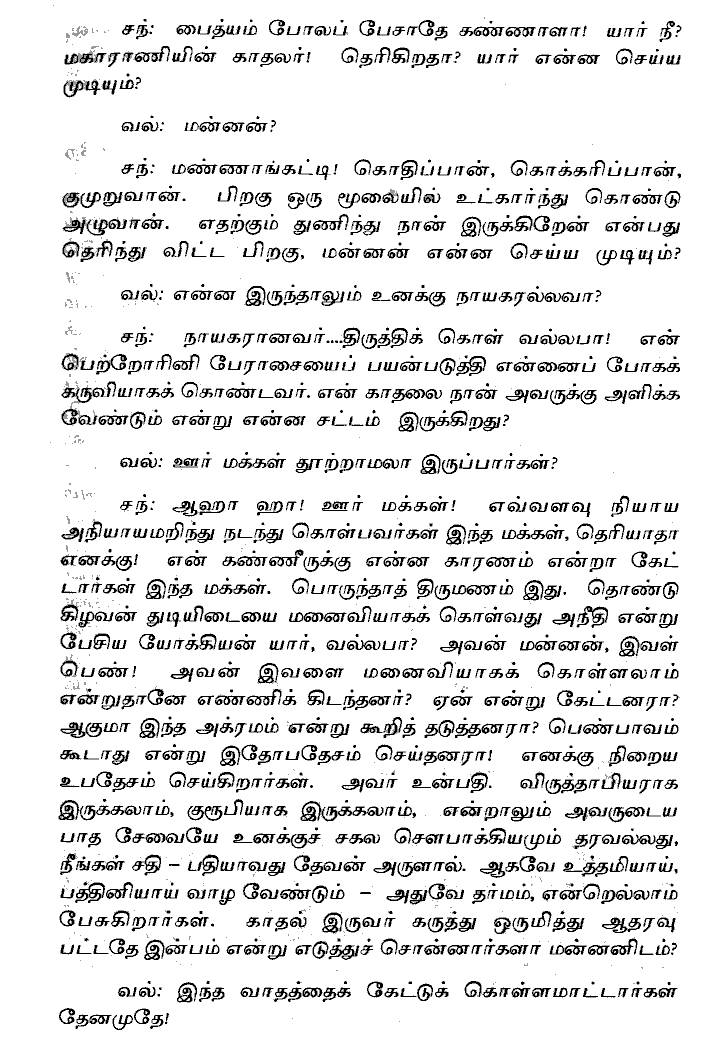 சந்: பைத்யம் போலப் பேசாதே கண்ணாளா! யார் நீ?
மகாராணியின் காதலர்! தெரிகிறதா? யார் என்ன செய்ய
முடியும்?
வல்: மன்னன்?
சந்: மண்ணாங்கட்டி! கொதிப்பான், கொக்கரிப்பான்,
குமுறுவான். பிறகு ஒரு மூலையில் உட்கார்ந்து கொண்டு
அழுவான். எதற்கும் துணிந்து நான் இருக்கிறேன் என்பது
தெரிந்து விட்ட பிறகு, மன்னன் என்ன செய்ய முடியும்?
வல்: என்ன இருந்தாலும் உனக்கு நாயகரல்லவா?
சந்: நாயகரானவர்....திருத்திக் கொள் வல்லபா! என்
பெற்றோரினி பேராசையைப் பயன்படுத்தி என்னைப் போகக்
கருவியாகக் கொண்டவர். என் காதலை நான் அவருக்கு அளிக்க
வேண்டும் என்று என்ன சட்டம் இருக்கிறது?
வல்: ஊர் மக்கள் தூற்றாமலா இருப்பார்கள்?
சந்: ஆஹா ஹா! ஊர் மக்கள்! எவ்வளவு நியாய
அநியாயமறிந்து நடந்து கொள்பவர்கள் இந்த மக்கள், தெரியாதா
எனக்கு! என் கண்ணீருக்கு என்ன காரணம் என்றா கேட்
டார்கள் இந்த மக்கள். பொருந்தாத் திருமணம் இது. தொண்டு
கிழவன் துடியிடையை மனைவியாகக் கொள்வது அநீதி என்று
பேசிய யோக்கியன் யார், வல்லபா? அவன் மன்னன், இவள்
பெண்! அவன் இவளை மனைவியாகக் கொள்ளலாம்
என்றுதானே எண்ணிக் கிடந்தனர்? ஏன் என்று கேட்டனரா?
ஆகுமா இந்த அக்ரமம் என்று கூறித் தடுத்தனரா? பெண்பாவம்
கூடாது என்று இதோபதேசம் செய்தனரா! எனக்கு நிறைய
உபதேசம் செய்கிறார்கள். அவர் உன்பதி. விருத்தாபியராக
இருக்கலாம், குரூபியாக இருக்கலாம், என்றாலும் அவருடைய
பாத சேவையே உனக்குச் சகல சௌபாக்கியமும் தரவல்லது,
நீங்கள் சதி – பதியாவது தேவன் அருளால். ஆகவே உத்தமியாய்,
பத்தினியாய் வாழ வேண்டும் – அதுவே தர்மம், என்றெல்லாம்
பேசுகிறார்கள். காதல் இருவர் கருத்து ஒருமித்து ஆதரவு
பட்டதே இன்பம் என்று எடுத்துச் சொன்னார்களா மன்னனிடம்?
வல்: இந்த வாதத்தைக் கேட்டுக் கொள்ளமாட்டார்கள்
தேனமுதே!